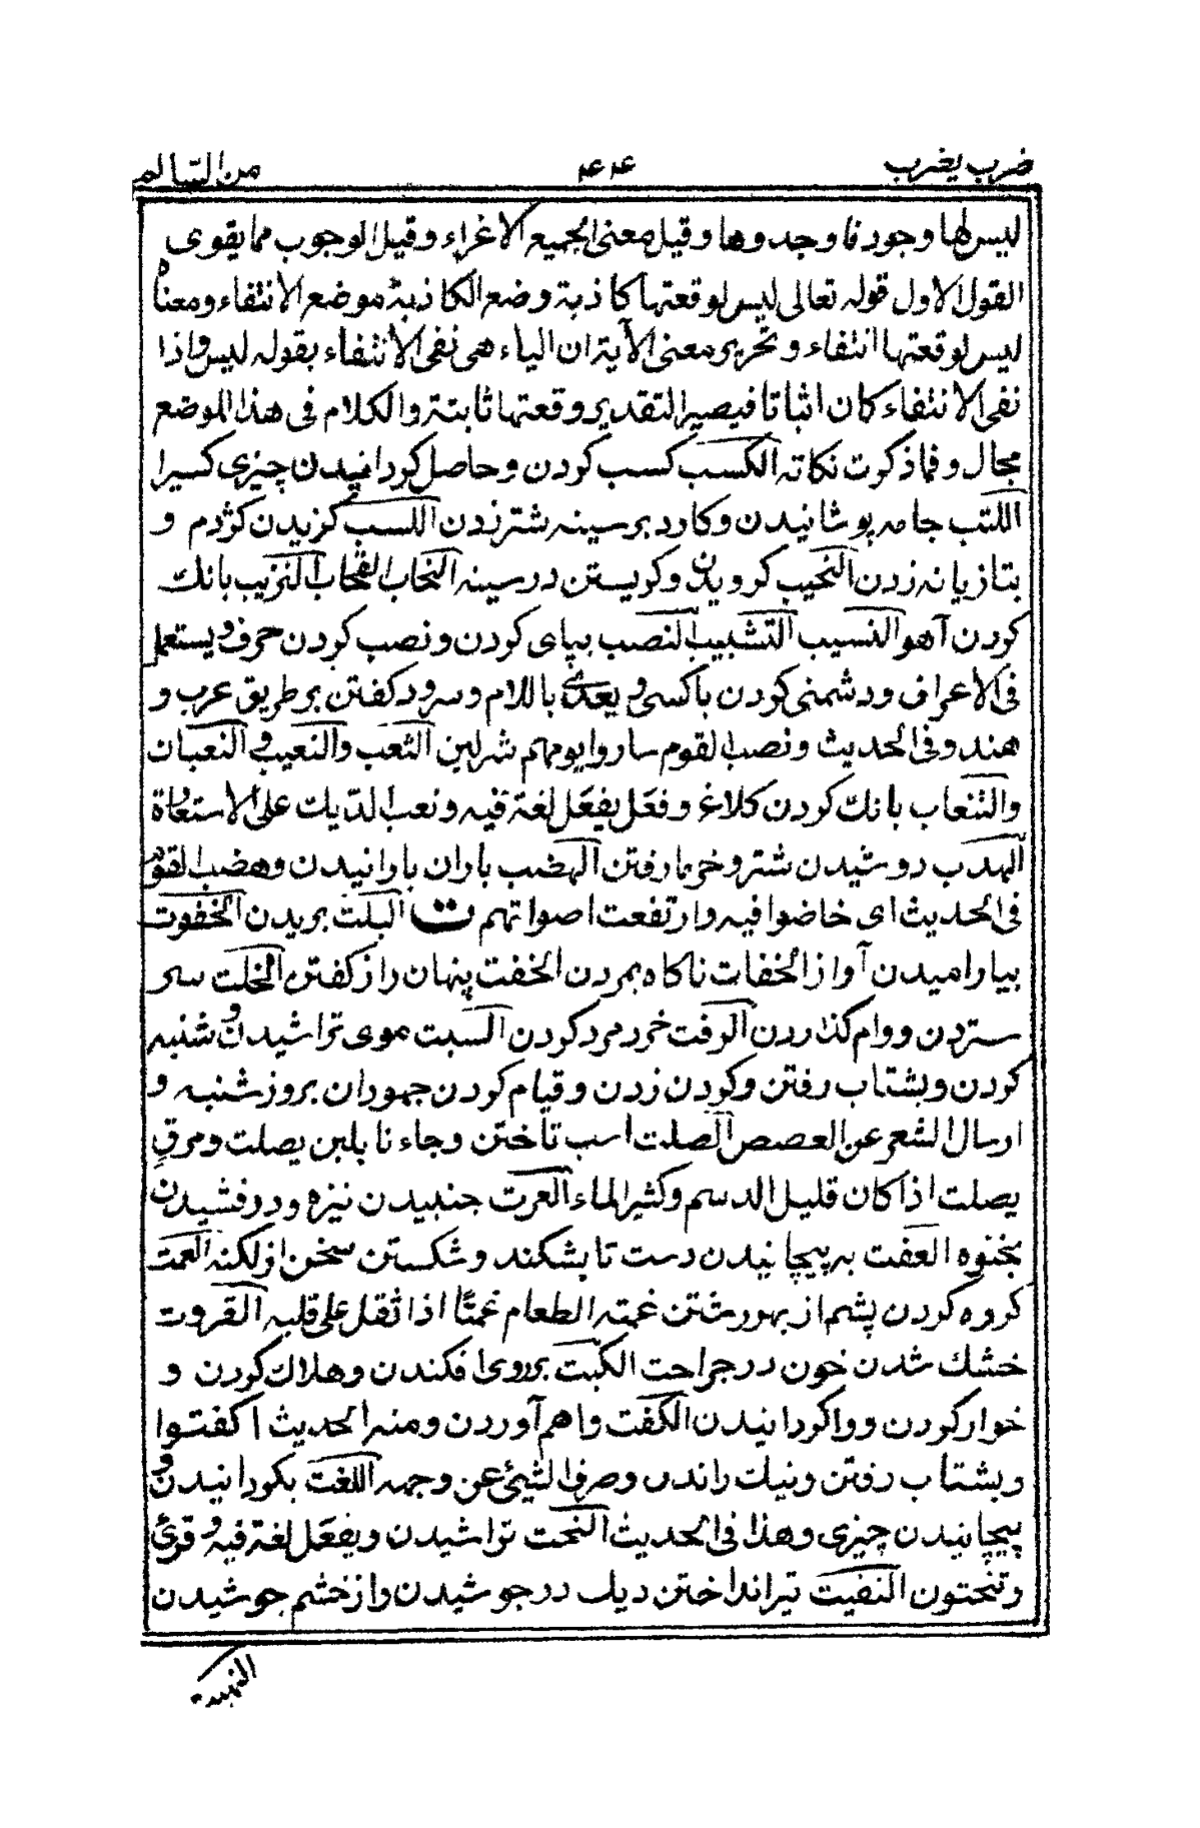 ضرب يضرب ۴۴ من السالم
ليس لها وجود نا وجدوها وقيل معنى الجميع الاغراء وقيل الوجوب مما يقوى
القول الاول قوله تعالى ليس لوقعتها كاذبة وضع الكاذبة موضع الانتفاء ومعناه
ليس لوقعتها انتفاء وتحرير معنى الآية ان الياء هى نفى الانتفاء بقوله ليس واذا
نفى الانتفاء كان اثباتا فيصير التقدير وقعتها ثابتة والكلام فى هذا الموضع
مجال وفما ذكرت نكاته الكسب كسب كردن وحاصل كردانيدن چيزى كسيرا
اللتب جامه پوشانيدن وكارد بر سينه شتر زدن اللسب كزيدن كژدم و
بتازيانه زدن النحيب كرويدن وكريستن در سينه النحاب القحاب النزيب بانك
كردن آهو النسيب التشبيب النصب بپاى كردن ونصب كردن حرف ويستعمل
فى الاعراف ودشمنى كردن باكسى ويعدى باللام وسرود كفتن بر طريق عرب و
هند وفى الحديث ونصب القوم ساروا يومهم شر لين الثعب والنعيب فى النعبان
والتنعاب بانك كردن كلاغ وفعل يفعل لغة فيه ونعب الديك على الاستعارة
الهدب دوشيدن شتر وخرما رفتن الهضب باران بارانيدن وهضب القوم
فى الحديث اى خاضوا فيه وارتفعت اصواتهم ت البلت بريدن الخفوت
بيا راميدن آواز الخفات ناكاه بمردن الخفت پنهان راز كفتن الخلت سر
ستردن ووام كذاردن الرفت خرد مرد كردن السبت موى تراشيدن وشنبه
كردن وبشتاب رفتن وكردن زدن وقيام كردن جهودان بروز شنبه و
ارسال الشعر عن العصص الصلت اسب تاختن وجاءنا بلبن يصلت ومرق
يصلت اذا كان قليل الدسم وكثير الماء العرت جنبيدن نيزه ودرفشيدن
بخنوه العفت به پيچانيدن دست تا بشكند وشكستن سخن از لكنه العمت
كروه كردن پشم از بهر رشتن غمته الطعام غمتا اذا ثقل على قلبه القروت
خشك شدن خون در جراحت الكبت بر روى افكندن وهلاك كردن و
خوار كردن وواكردانيدن الكفت واهم آوردن ومنه الحديث اكفتوا
وبشتاب رفتن ونيك راندن وصرف الشيئ عن وجهه اللغت بكردانيدن و
پيچانيدن چيزى وهذا فى الحديث النحت تراشيدن ويفعل لغة فيه وقرئ
وتنحتون النفيت تيرانداختن ديك در جوشيدن واز خشم جوشيدن
النهيت